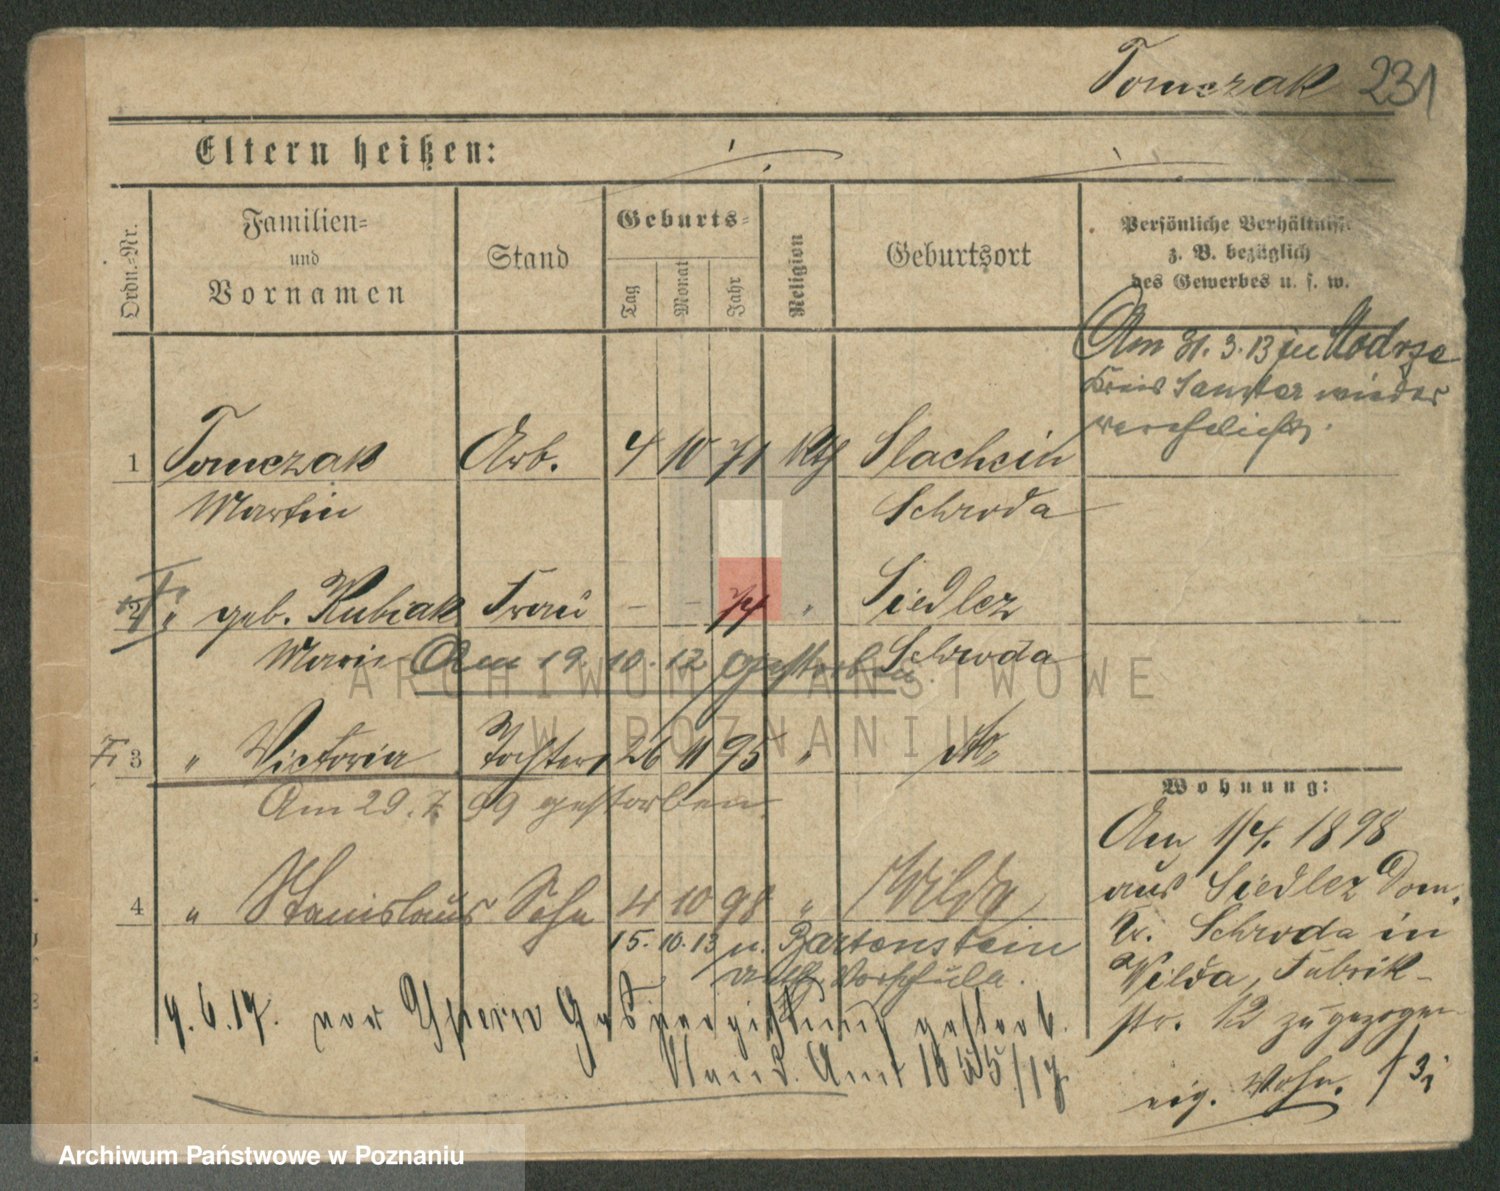 Tomczak 231
Eltern heißen:
Ordn.-Nr.
Familien-
und
Vornamen
Stand
Geburts-
Tag
Monat
Jahr
Religion
Geburtsort
Persönliche Verhältnisse
z. B. bezüglich
des Gewerbes u. s. w.
Am 31. 3. 13 in Modrze
Kreis Samter wieder
verehelicht.
1 Tomczak Arb. 4 10 71 kth Slachcin
Martin Schroda
2 " geb. Kubiak Frau – – 74 " Siedlez
Marie Am 19. 10. 12 gestorben. Schroda
3 " Victoria Tochter 26 11 95 " do
Am 29. 7. 99 gestorben.
4 " Stanislaus Sohn 4 10 98 " Wilda
15. 10. 13 n. Bartenstein
Vorschule.
9. 6. 17. vor Ypern Gasvergiftung gestorb.
Stand. Amt 1855/17
Wohnung:
Am 1/4. 1898
aus Siedlez Dom.
Kr. Schroda in
Wilda, Fabrik-
str. 12 zugezogen
eig. Wohn.
ARCHIWUM PAŃSTWOWE
W POZNANIU
Archiwum Państwowe w Poznaniu